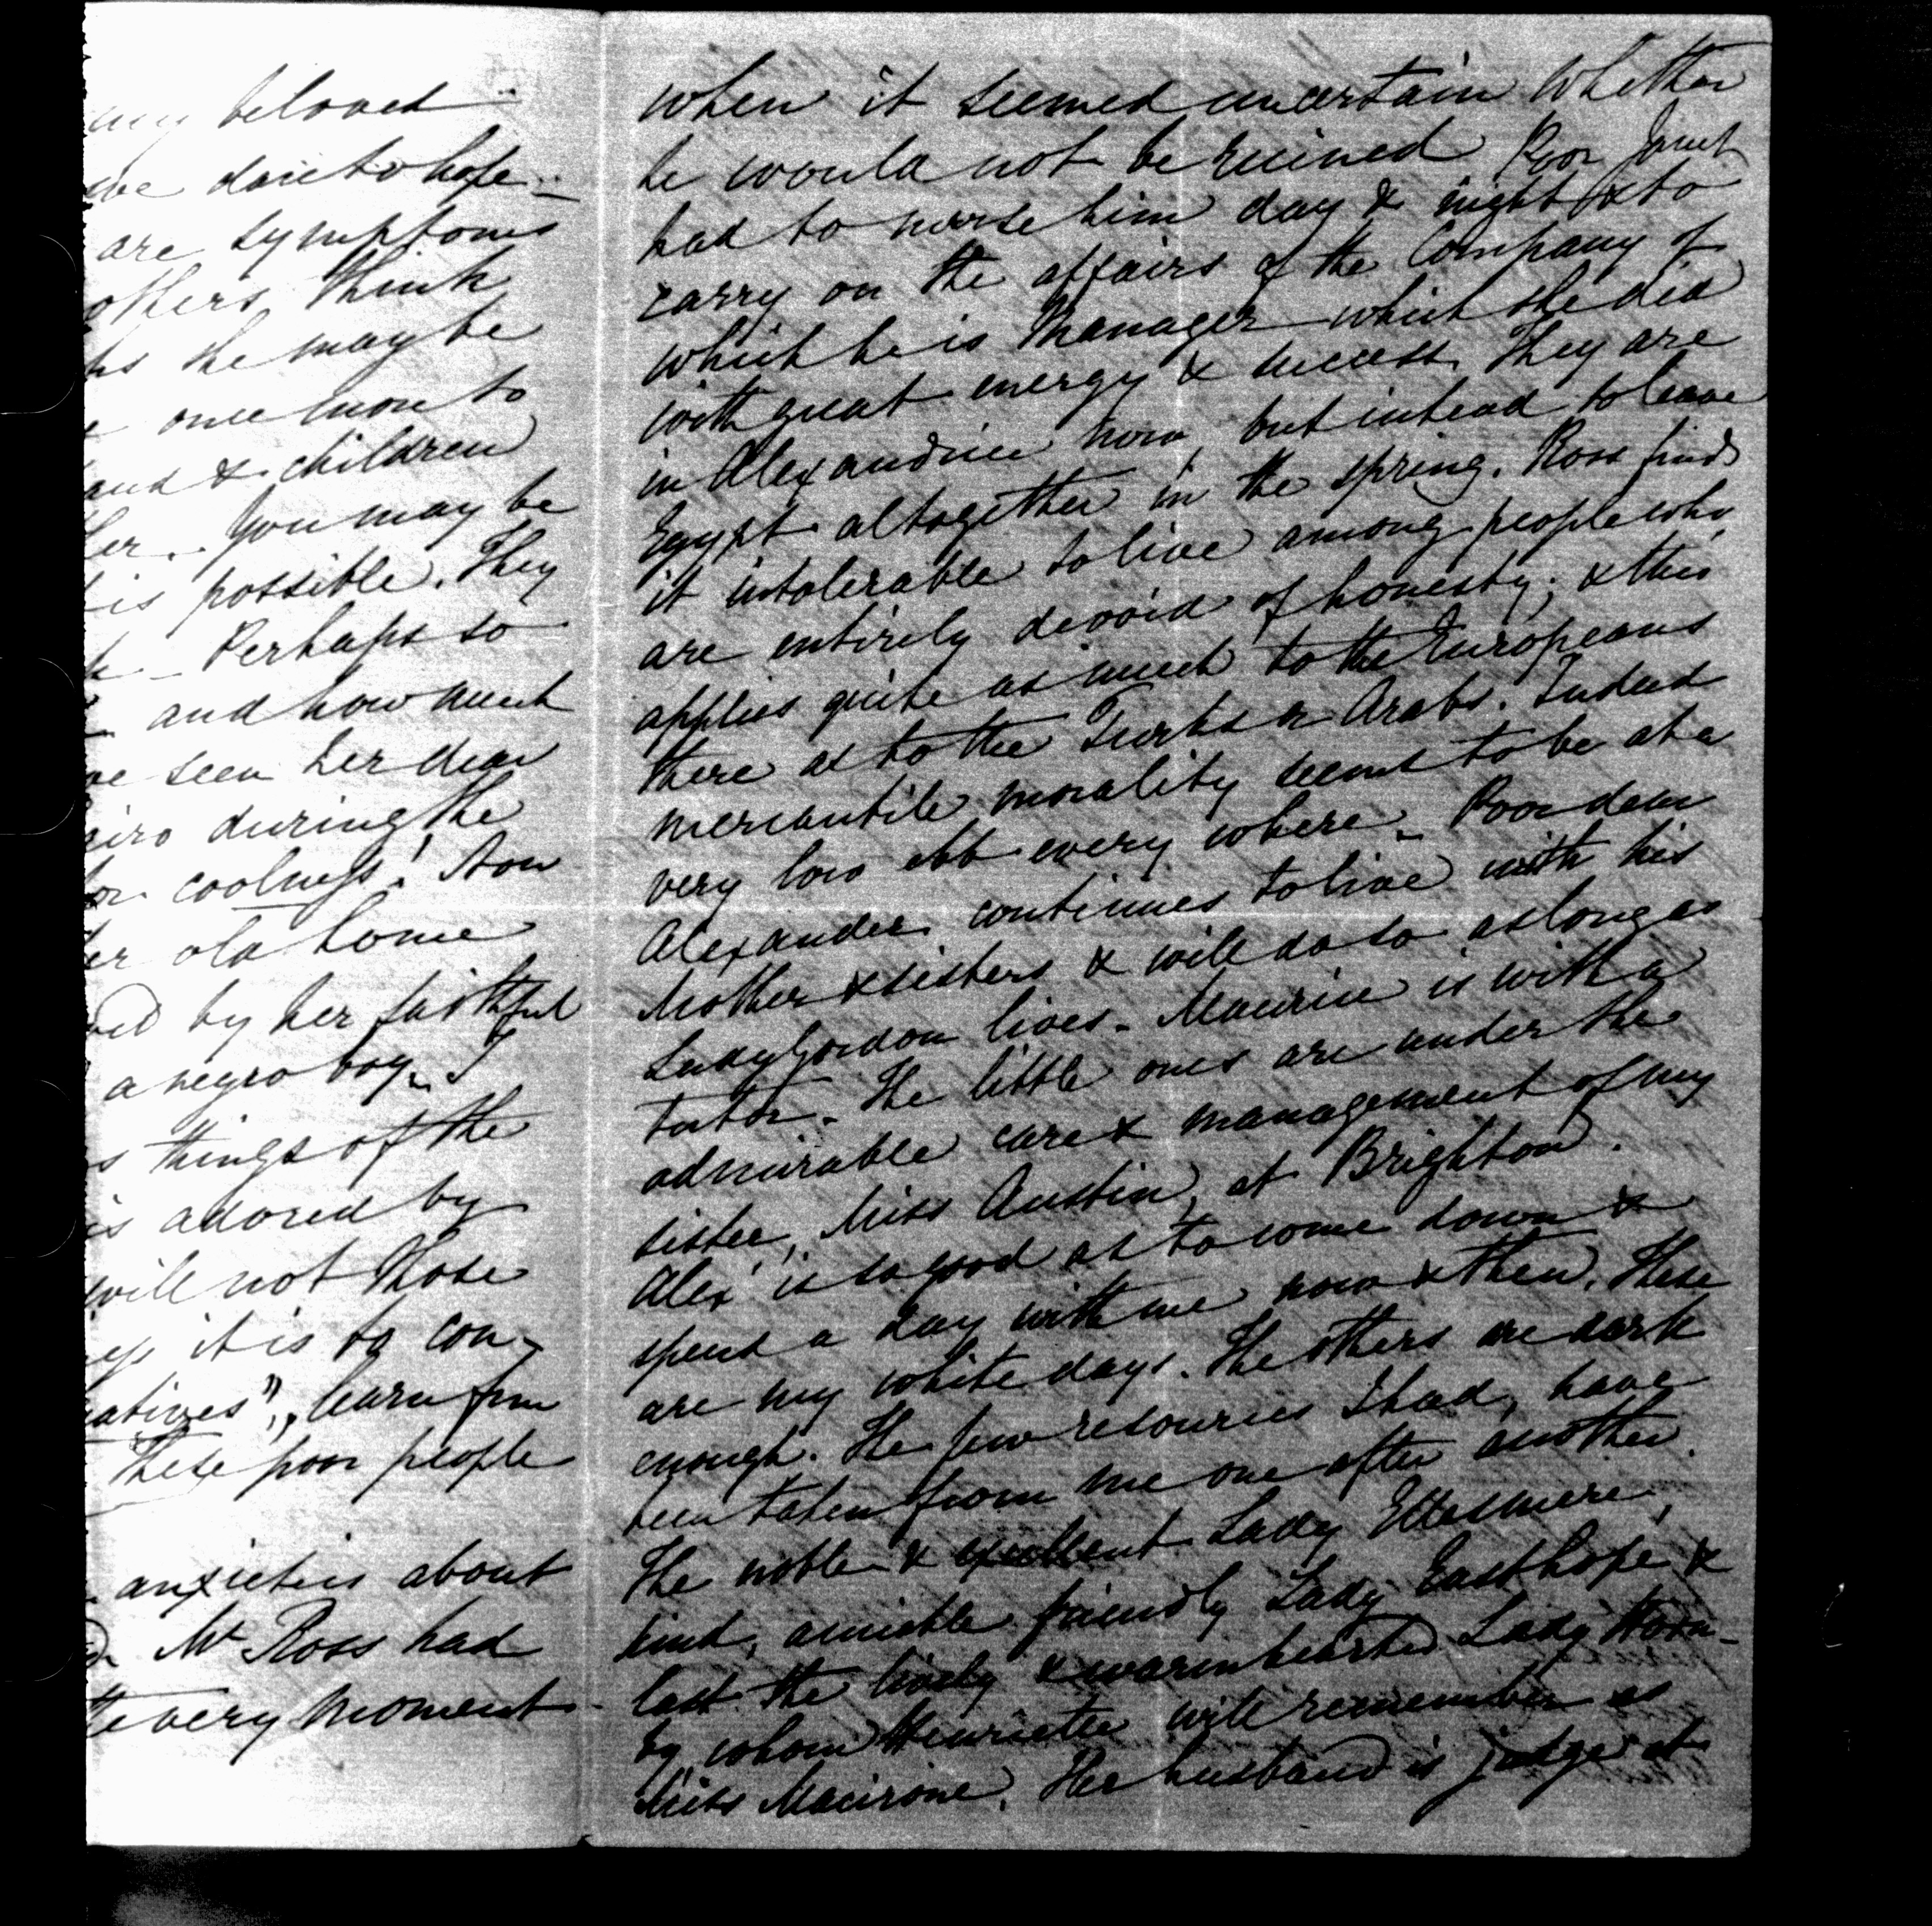 my beloved
we dare to hope
are symptoms
others think
she may be
once more to
and & children
her. You may be
is possible. They
Perhaps so
and how much
seen her dear
during the
for coolness! Now
her old home
by her faithful
a negro boy. I
things of the
is adored by
will not those
it is to con-
natives", learn from
these poor people
anxieties about
Mr Ross had
the very moment
when it seemed uncertain whether
he would not be ruined Poor Janet
had to nurse him day & night & to
carry on the affairs of the Company of
which he is Manager which she did
with great energy & success. They are
in Alexandria now, but intend to leave
Egypt altogether in the spring. Ross finds
it intolerable to live among people who
are entirely devoid of honesty; & this
applies quite as much to the Europeans
there as to the Turks or Arabs. Indeed
mercantile morality seems to be at a
very low ebb every where. Poor dear
Alexander continues to live with his
Mother & sisters & will do so as long as
Lady Gordon lives. Maurice is with a
tutor. The little ones are under the
admirable care & management of my
sister, Miss Austin, at Brighton.
Alex is so good as to come down &
spend a day with me now & then. These
are my white days. The others are dark
enough. The few resources I had, have
been taken from me one after another.
The noble & excellent Lady Ellesmere,
kind, amiable friendly Lady Easthope &
last the lively & warmhearted Lady Horn-
by whom Henriette will remember as
Miss Macirone. Her husband is judge at